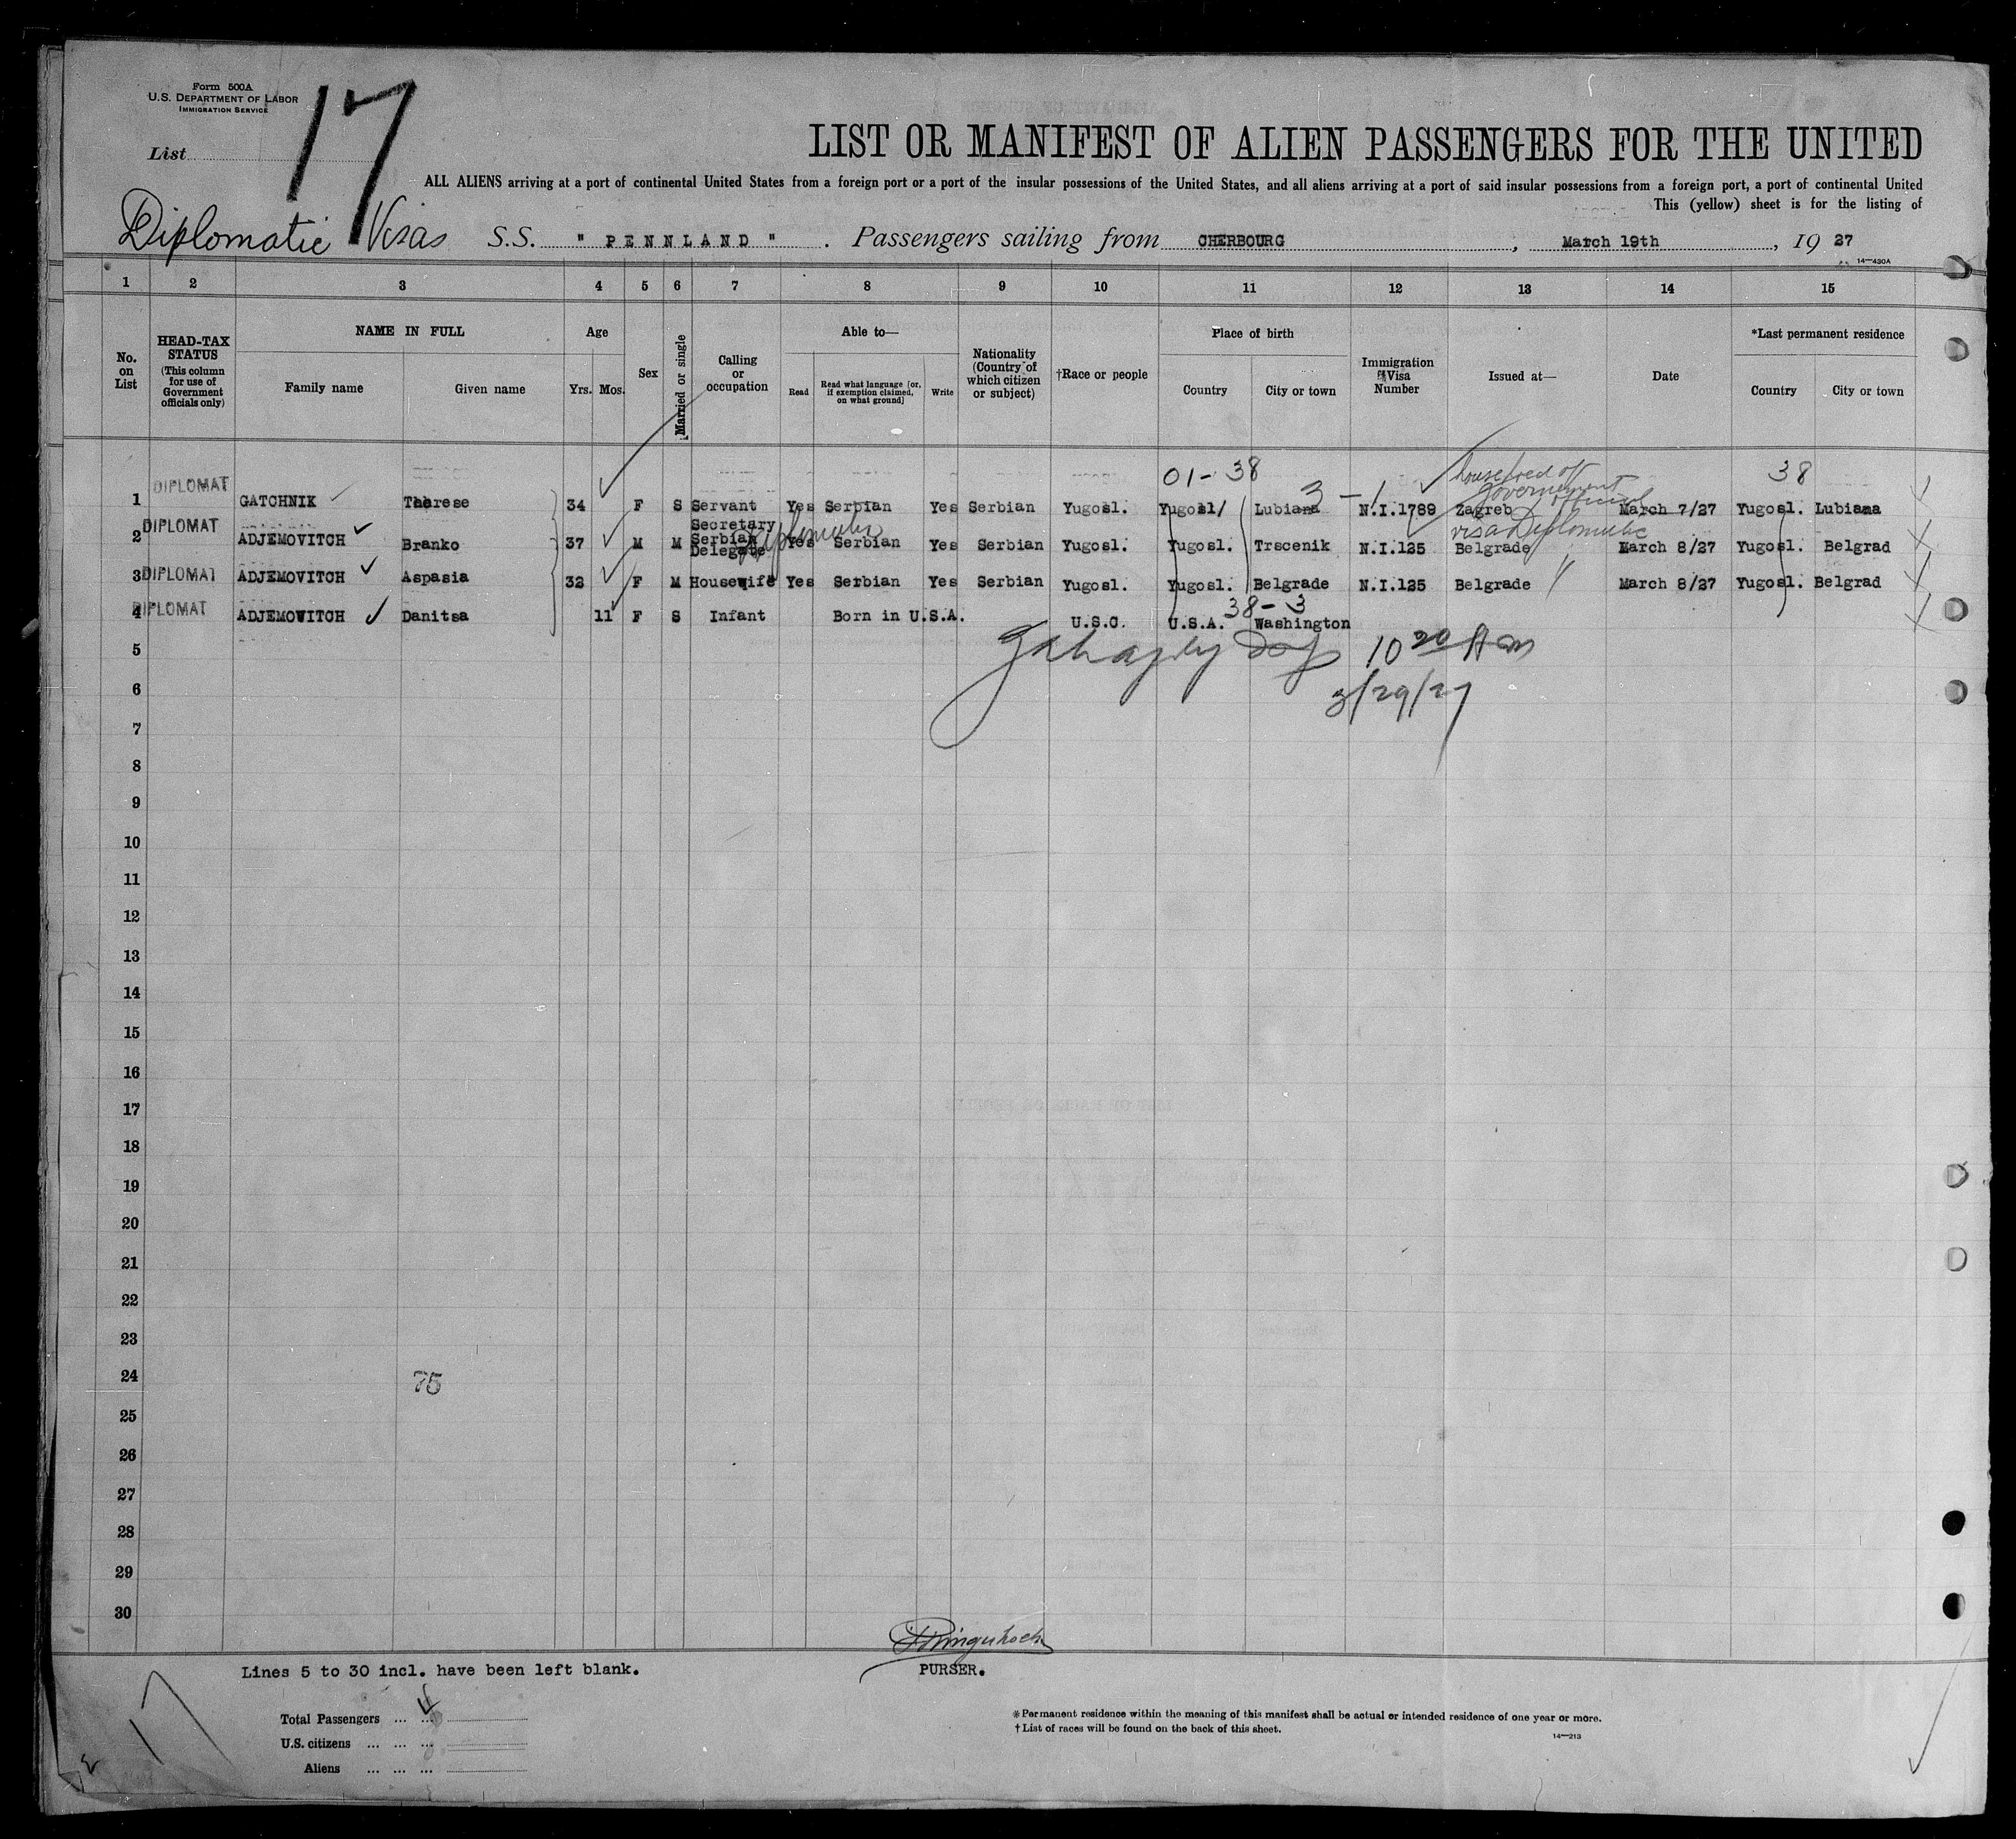 Form 500A
U.S. DEPARTMENT OF LABOR
IMMIGRATION SERVICE
17
List
LIST OR MANIFEST OF ALIEN PASSENGERS FOR THE UNITED
ALL ALIENS arriving at a port of continental United States from a foreign port or a port of the insular possessions of the United States, and all aliens arriving at a port of said insular possessions from a foreign port, a port of continental United
This (yellow) sheet is for the listing of
Diplomatic Visas S.S. " PENNLAND " . Passengers sailing from CHERBOURG , March 19th , 19 27
14—430A
1 2 3 4 5 6 7 8 9 10 11 12 13 14 15
No. on List
HEAD-TAX STATUS (This column for use of Government officials only)
NAME IN FULL
Family name Given name
Age
Yrs. Mos.
Sex
Married or single
Calling or occupation
Able to—
Read Read what language [or, if exemption claimed, on what ground] Write
Nationality (Country of which citizen or subject)
†Race or people
Place of birth
Country City or town
Immigration Visa Number
Issued at—
Date
*Last permanent residence
Country City or town
01-38 3 - 1 household of government official 38
1 DIPLOMAT GATCHNIK Therese 34 F S Servant Yes Serbian Yes Serbian Yugosl. Yugosl/ Lubiana N.I.1789 Zagreb March 7/27 Yugosl. Lubiana
visa Diplomatic
2 DIPLOMAT ADJEMOVITCH Branko 37 M M Secretary Serbian Delegate Diplomatic Yes Serbian Yes Serbian Yugosl. Yugosl. Trscenik N.I.125 Belgrade March 8/27 Yugosl. Belgrad
3 DIPLOMAT ADJEMOVITCH Aspasia 32 F M Housewife Yes Serbian Yes Serbian Yugosl. Yugosl. Belgrade N.I.125 Belgrade " March 8/27 Yugosl. Belgrad
4 DIPLOMAT ADJEMOVITCH Danitsa 11 F S Infant Born in U.S.A. U.S.C. U.S.A. 38-3 Washington
5
10 20 AM
6
3/29/27
7
8
9
10
11
12
13
14
15
16
17
18
19
20
21
22
23
24 75
25
26
27
28
29
30
Lines 5 to 30 incl. have been left blank.
PURSER.
17
Total Passengers ... ... 4
U.S. citizens ... ... ...
Aliens ... ... ...
* Permanent residence within the meaning of this manifest shall be actual or intended residence of one year or more.
† List of races will be found on the back of this sheet.
14—213